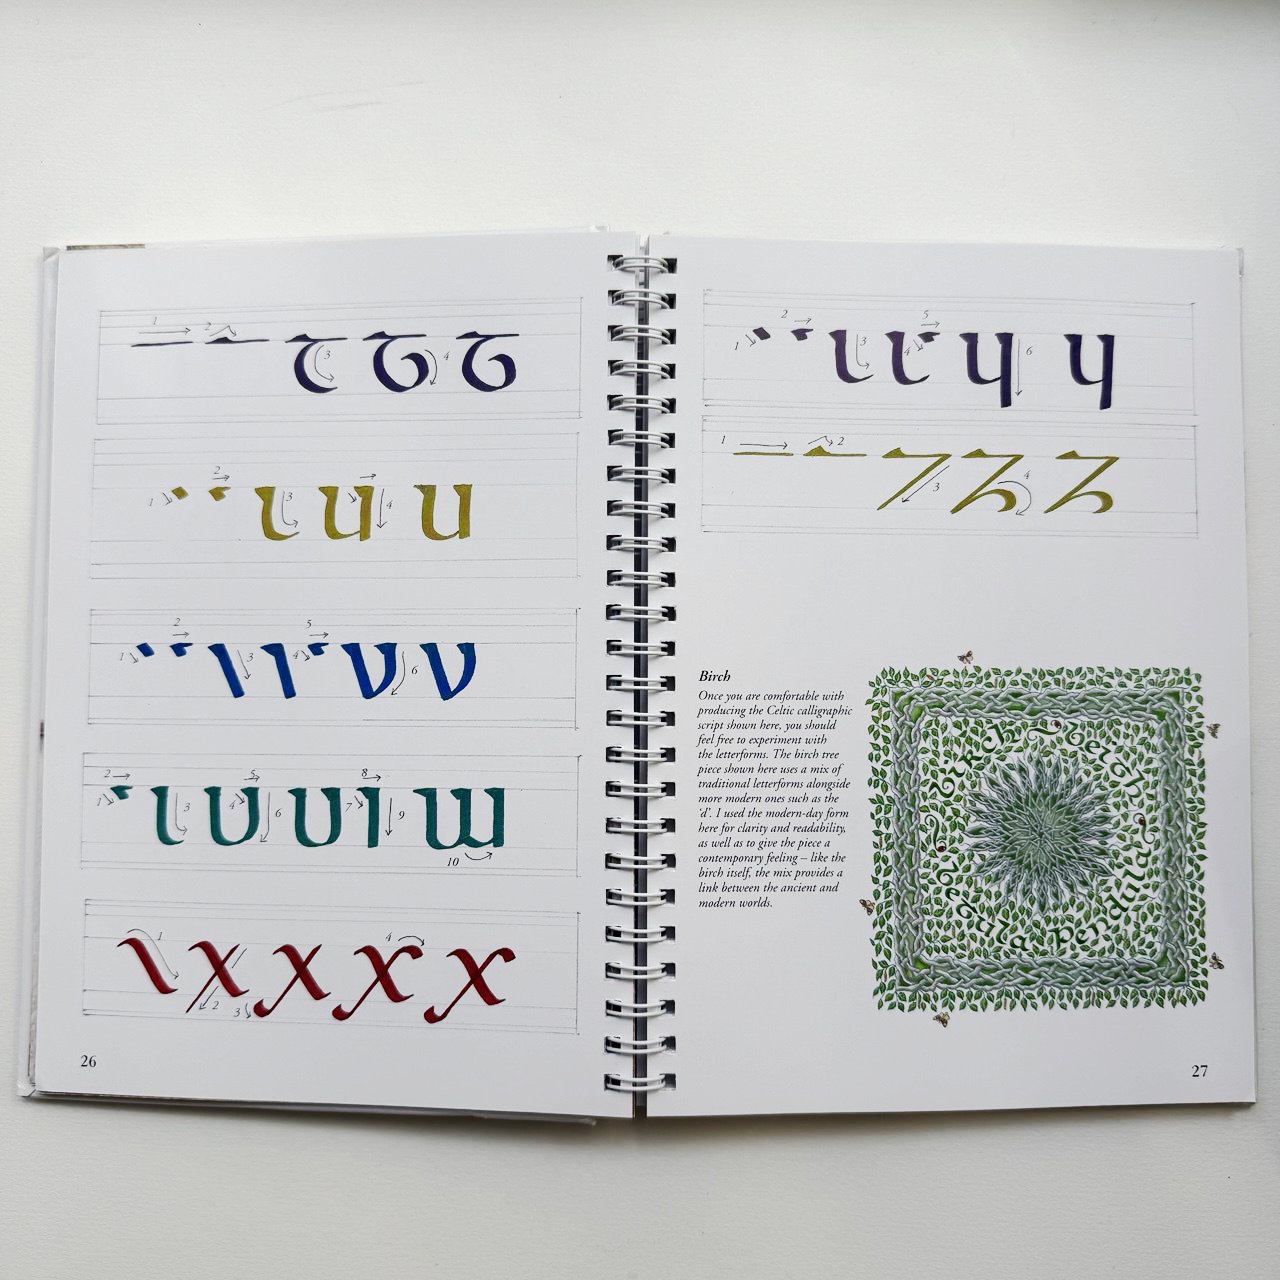 1 2 3 t 4 t
1 2 3 u 4 u
1 2 3 4 5 v 6 v
1 2 3 4 5 6 7 8 9 w 10
1 x 2 3 x 4 x x
26
1 2 3 4 5 y 6 y
1 2 3 z 4 z
Birch
Once you are comfortable with
producing the Celtic calligraphic
script shown here, you should
feel free to experiment with
the letterforms. The birch tree
piece shown here uses a mix of
traditional letterforms alongside
more modern ones such as the
'd'. I used the modern-day form
here for clarity and readability,
as well as to give the piece a
contemporary feeling – like the
birch itself, the mix provides a
link between the ancient and
modern worlds.
birch
betula pendula
27